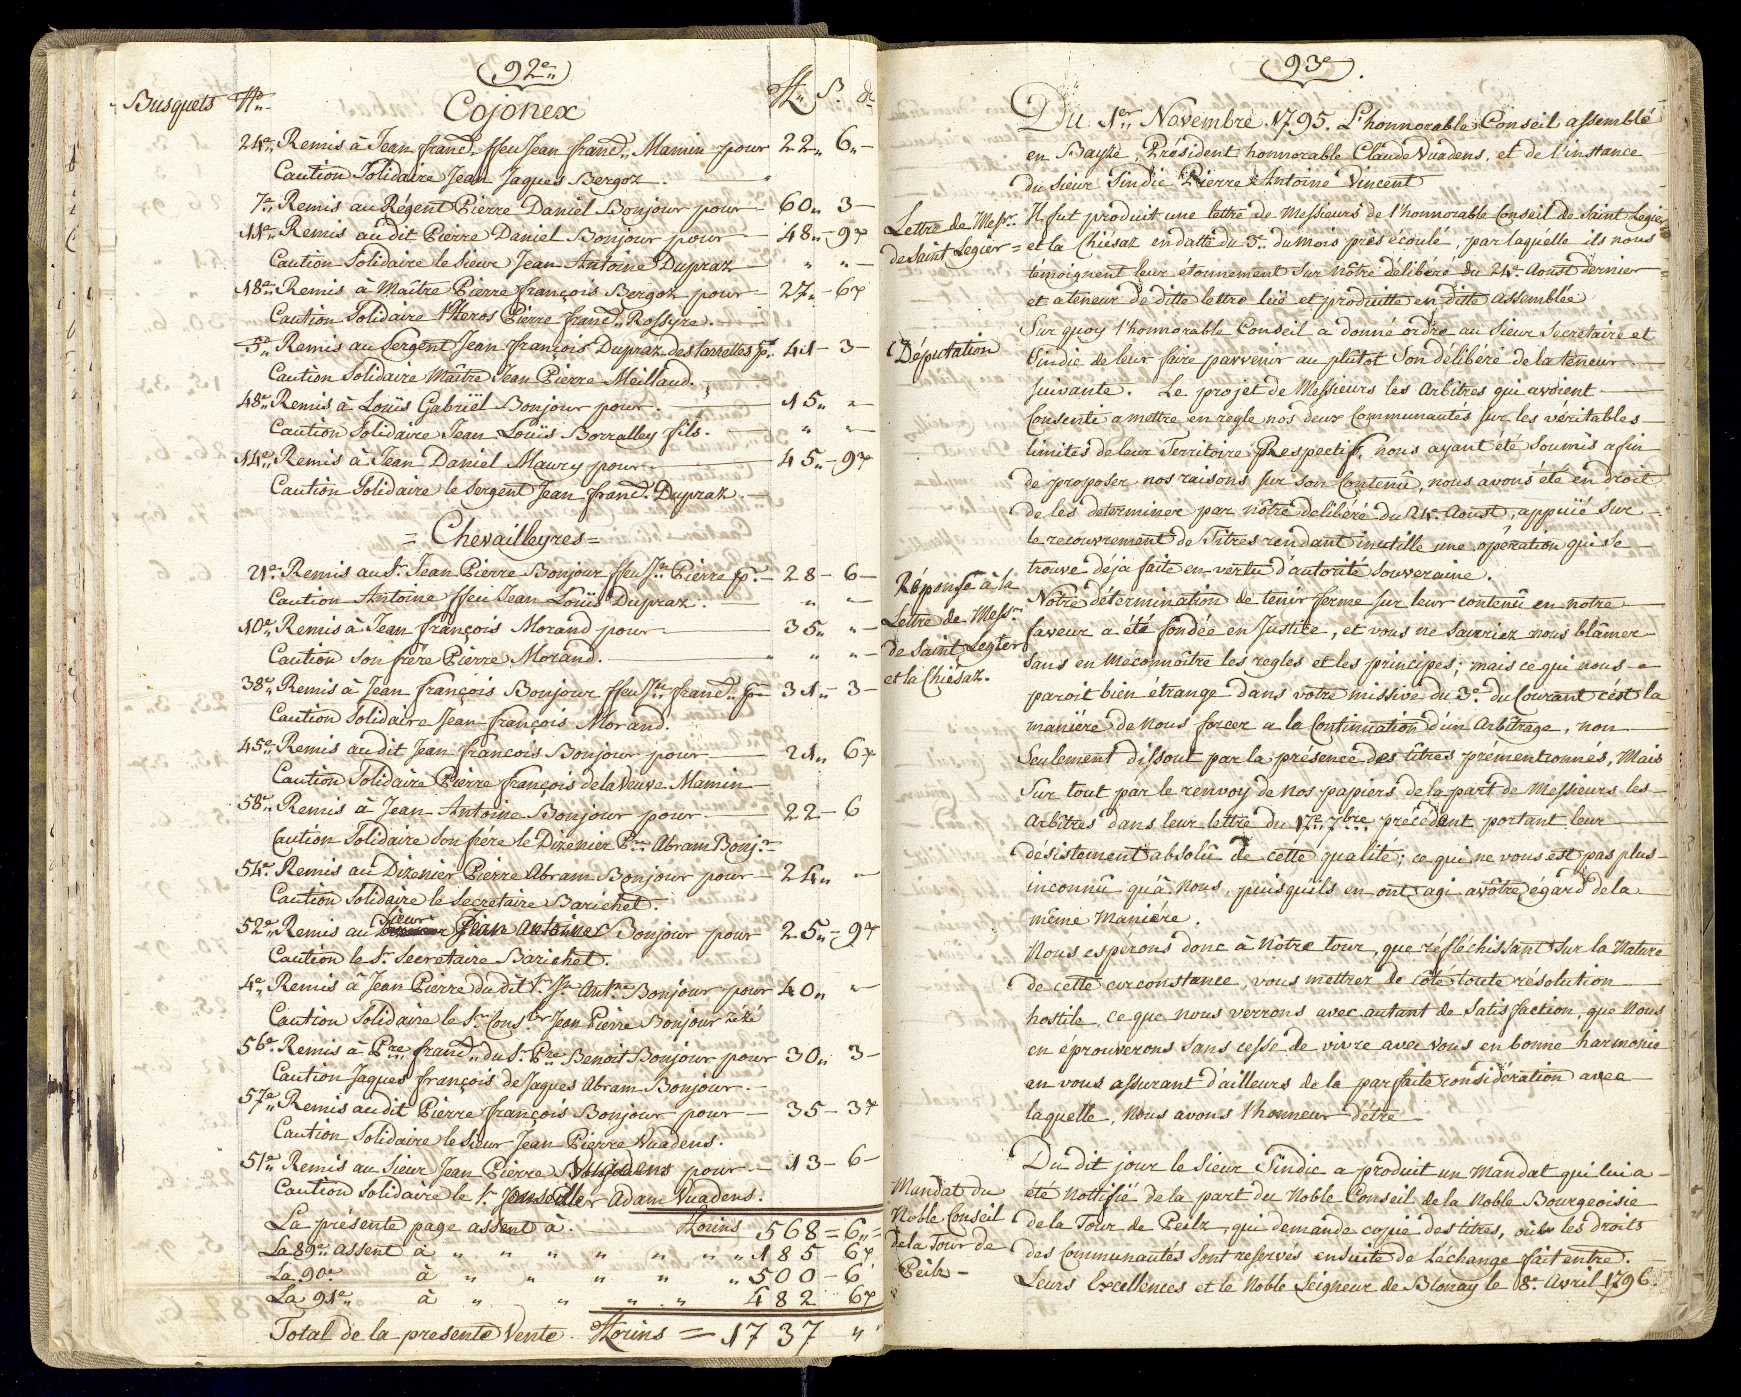 92e
Busquets No Cojonex ff. S. d.
24e Remis à Jean francs. ffeu Jean francs. Mamin pour 22 6
Caution Solidaire Jean Jaques Bergoz.
7e Remis au Régent Pierre Daniel Bonjour pour 60 3
11e Remis au dit Pierre Daniel Bonjour pour 48 9
Caution Solidaire le Sieur Jean Antoine Dupraz
18e Remis à Maître Pierre françois Bergoz pour 27 6
Caution Solidaire Pierre francs. Rossyre.
5e Remis au Sergent Jean françois Dupraz des tavelles pr. 41 3
Caution Solidaire Maître Jean Pierre Meilland.
48e Remis à Loüis Gabriël Bonjour pour 15
Caution Solidaire Jean Loüis Borralley fils.
14e Remis à Jean Daniel Maury pour 45 9
Caution Solidaire le Sergent Jean francs. Dupraz.
= Chevailleyres =
21e Remis au Sr. Jean Pierre Bonjour ffeu Jn. Pierre pr. 28 6
Caution Antoine ffeu Jean Loüis Dupraz.
10e Remis à Jean françois Morand pour 35
Caution Son frère Pierre Morand.
38e Remis à Jean françois Bonjour ffeu Jn. francs. pr. 31 3
Caution Solidaire Jean françois Morand.
45e Remis au dit Jean francois Bonjour pour 21 6
Caution Solidaire Pierre françois de la Veuve Mamin
58e Remis à Jean Antoine Bonjour pour 22 6
Caution Solidaire Son frére le Dizenier Pre. Abram Bonjr.
54e Remis au Dizenier Pierre Abram Bonjour pour 24
Caution Solidaire le Secretaire Barichet.
52e Remis au Sieur Jean Antoine Bonjour pour 25 9
Caution le Sr. Secretaire Barichet.
4e Remis à Jean Pierre du dit Sr. Jn. Antne. Bonjour pour 40
Caution Solidaire le Sr. Conser. Jean Pierre Bonjour zézé
56e Remis à Pre. francs. du Sr. Pre. Benoit Bonjour pour 30 3
Caution Jaques françois de Jaques Abram Bonjour.
57e Remis au dit Pierre françois Bonjour pour 35 3
Caution Solidaire le Sieur Jean Pierre Vuadens.
51e Remis au Sieur Jean Pierre Vuadens pour 13 6
Caution Solidaire le Sr. Conseiller Adam Vuadens.
La présente page assent à florins 568 = 6
La 89e assent à 185 6
La 90e à 500 6
La 91e à 482 6
Total de la presente Vente florins = 1737
93e
Du 1er Novembre 1795. L'honnorable Conseil assemblé
en Baylié, Président honnorable Claude Vuadens, et de l'instance
du Sieur Sindic Pierre Antoine Vincent
Lettre de Messrs.
de Saint Legier =
Il fut produit une lettre de Messieurs de l'honnorable Conseil de Saint Legier
et la Chiésaz en datte du 3e du mois près écoulé, par laquelle ils nous
témoignent leur étonnement Sur nôtre délibéré du 24e Aoust dernier
et a teneur de ditte lettre lüe et produitte en ditte Assemblée
Députation
Sur quoy l'honnorable Conseil a donné ordre au Sieur Secretaire et
Sindic de leur faire parvenir au plûtot Son délibéré de la teneur
Suivante. Le projet de Messieurs les Arbitres qui avoient
Consenti a mettre en regle nos deux Communautés sur les véritables
limites de leur Territoire Respectif, nous ayant été Soumis afin
de proposer nos raisons sur son Contenû, nous avons été en droit
de les determiner par nôtre délibéré du 24e Aoust, appuié Sur
le recouvrement de Titres rendant inutille une opération qui Se
trouve deja faite en vertu d'autorité Souveraine.
Réponse à la
Lettre de Messrs.
de Saint Legier
et la Chiésaz.
Nôtre détermination de tenir ferme sur leur contenû en notre
faveur a été fondée en Justice, et vous ne Sauriez nous blâmer
Sans en méconnoître les regles et les principes; mais ce qui nous
paroit bien étrange dans votre missive du 3e du Courant c'est la
maniére de nous forcer a la Continuation d'un Arbitrage, non
Seulement dissout par la présence des titres prémentionnés, Mais
Sur tout par le renvoy de nos papiers de la part de Messieurs les
Arbitres dans leur lettre du 17e 7bre précédent portant leur
désistement absolû de cette qualité; ce qui ne vous est pas plus
inconnû qu'à nous, puisqu'ils en ont agi a vôtre égard de la
même Maniére.
Nous espérons donc à Nôtre tour, que réfléchissant Sur la Nature
de cette circonstance, vous mettrez de côté toute résolution
hostile, ce que nous verrons avec autant de Satisfaction, que Nous
en éprouverons Sans cesse de vivre avec vous en bonne harmonie
en vous assurant d'ailleurs de la parfaite considération avec
laquelle, Nous avons l'honneur d'être
Mandat du
Noble Conseil
de la Tour de
Peilz
Du dit jour le Sieur Sindic a produit un Mandat qui lui a
été Nottifié de la part du Noble Conseil de la Noble Bourgeoisie
de la Tour de Peilz, qui demande copie des titres, où les droits
des Communautés Sont reservés ensuite de L'échange fait entre
Leurs Excellences et le Noble Seigneur de Blonay le 8e Avril 1796